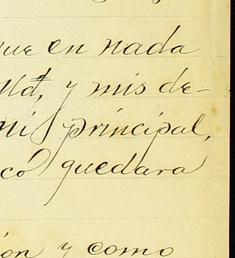 que en nada
Ud, y mis de-
mi principal,
co quedara
ión y como